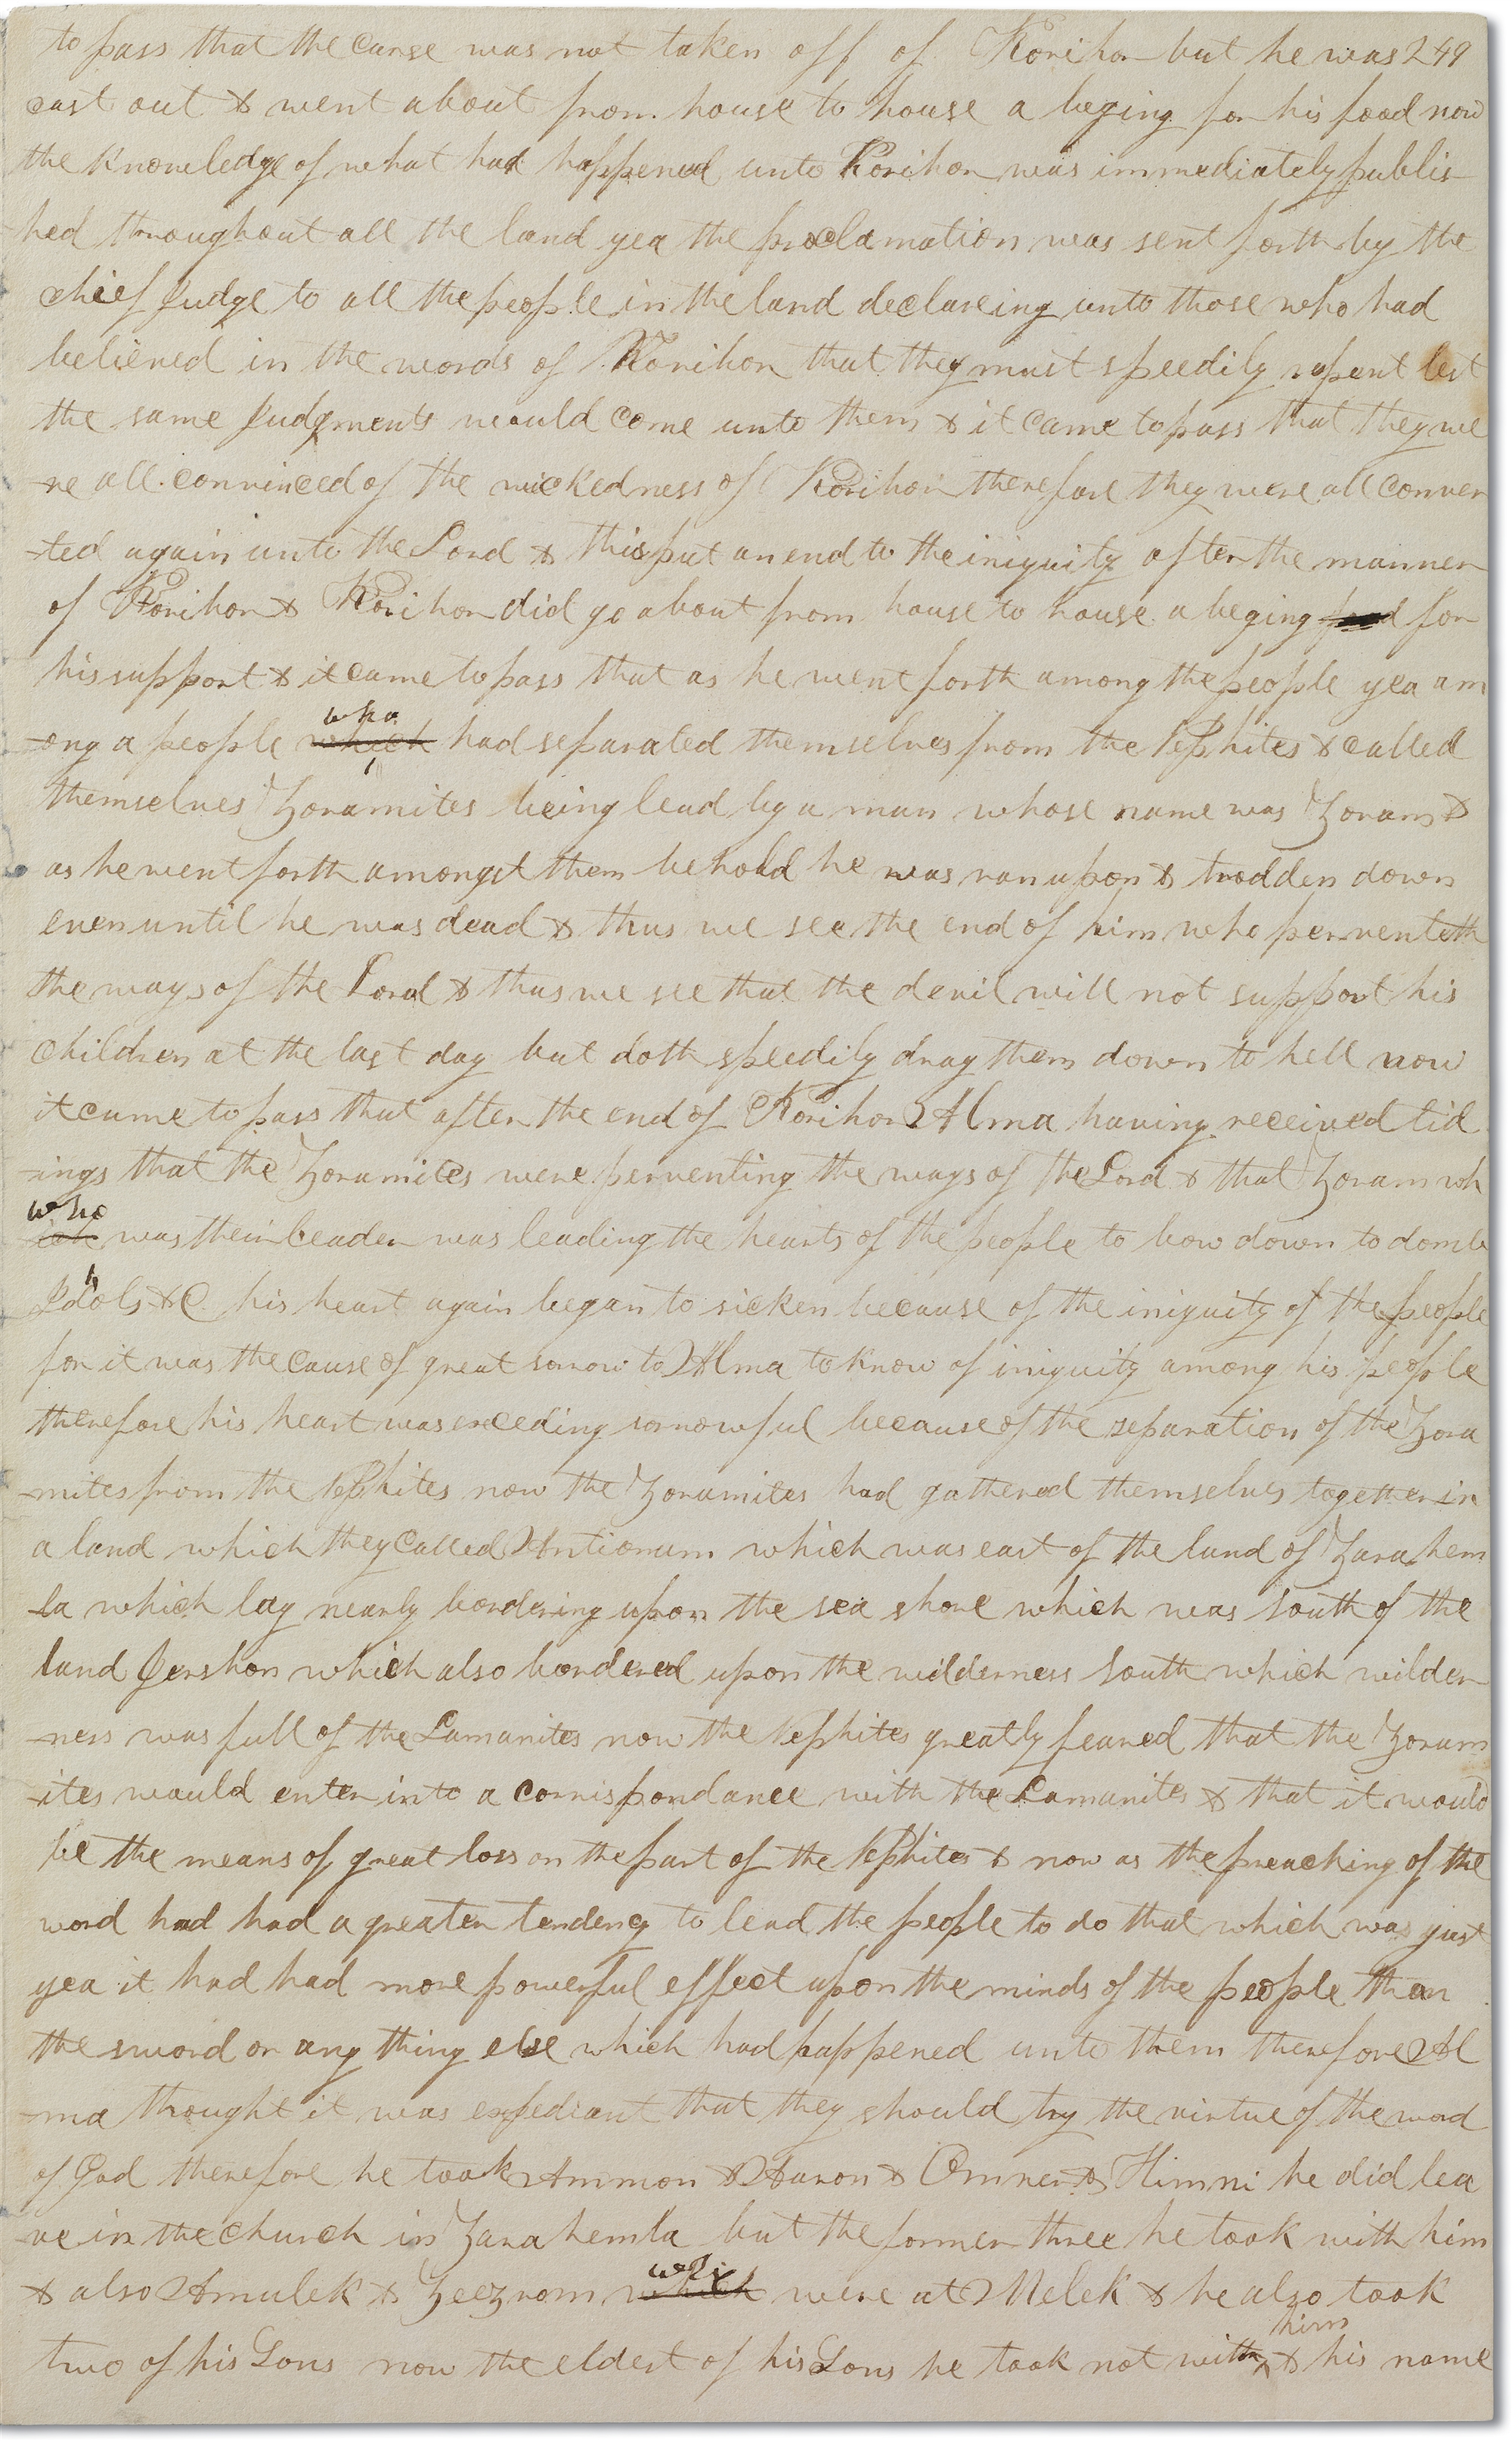 to pass that the curse was not taken off of Korihor but he was 249
cast out & went about from house to house a beging for his food now
the knowledge of what had happened unto Korihor was immediately publis
hed throughout all the land yea the proclamation was sent forth by the
chief Judge to all the people in the land declareing unto those who had
believed in the words of Korihor that they must speedily repent lest
the same Judgments would come unto them & it came to pass that they we
-re all convinced of the wickedness of Korihor therefore they were all conver
-ted again unto the Lord & this put an end to the iniquity after the manner
of Korihor & Korihor did go about from house to house a beging food for
his support & it came to pass that as he went forth among the people yea am
who
-ong a people which had separated themselves from the Nephites & called
themselves Zoramites being lead by a man whose name was Zoram &
as he went forth amongst them behold he was ran upon & trodden down
even until he was dead & thus we see the end of him who perverteth
the ways of the Lord & thus we see that the devil will not support his
children at the last day but doth speedily drag them down to hell now
it came to pass that after the end of Korihor Alma having received tid
-ings that the Zoramites were perverting the ways of the Lord & that Zoram wh
who
ich was their leader was leading the hearts of the people to bow down to domb
Idols &C his heart again began to sicken because of the iniquity of the people
for it was the cause of great sorrow to Alma to know of iniquity among his people
therefore his heart was exceding sorrowful because of the separation of the Zora
-mites from the Nephites now the Zoramites had gathered themselves together in
a land which they called Antionum which was east of the land of Zarahem
-la which lay nearly bordering upon the sea shore which was south of the
land Jershon which also bordered upon the wilderness south which wilder
-ness was full of the Lamanites now the Nephites greatly feared that the Zoram
-ites would enter into a corrispondance with the Lamanites & that it would
be the means of great loss on the part of the Nephites & now as the preaching of the
word had had a greater tendency to lead the people to do that which was just
yea it had had more powerful effect upon the minds of the people than
the sword or any thing else which had happened unto them therefore Al
-ma thought it was expediant that they should try the virtue of the word
of God therefore he took Ammon & Aaron & Omner & Himni he did lea
ve in the church in Zarahemla but the former three he took with him
who
& also Amulek & Zeezrom which were at Melek & he also took
him
two of his Sons now the eldest of his Sons he took not with ^ & his name